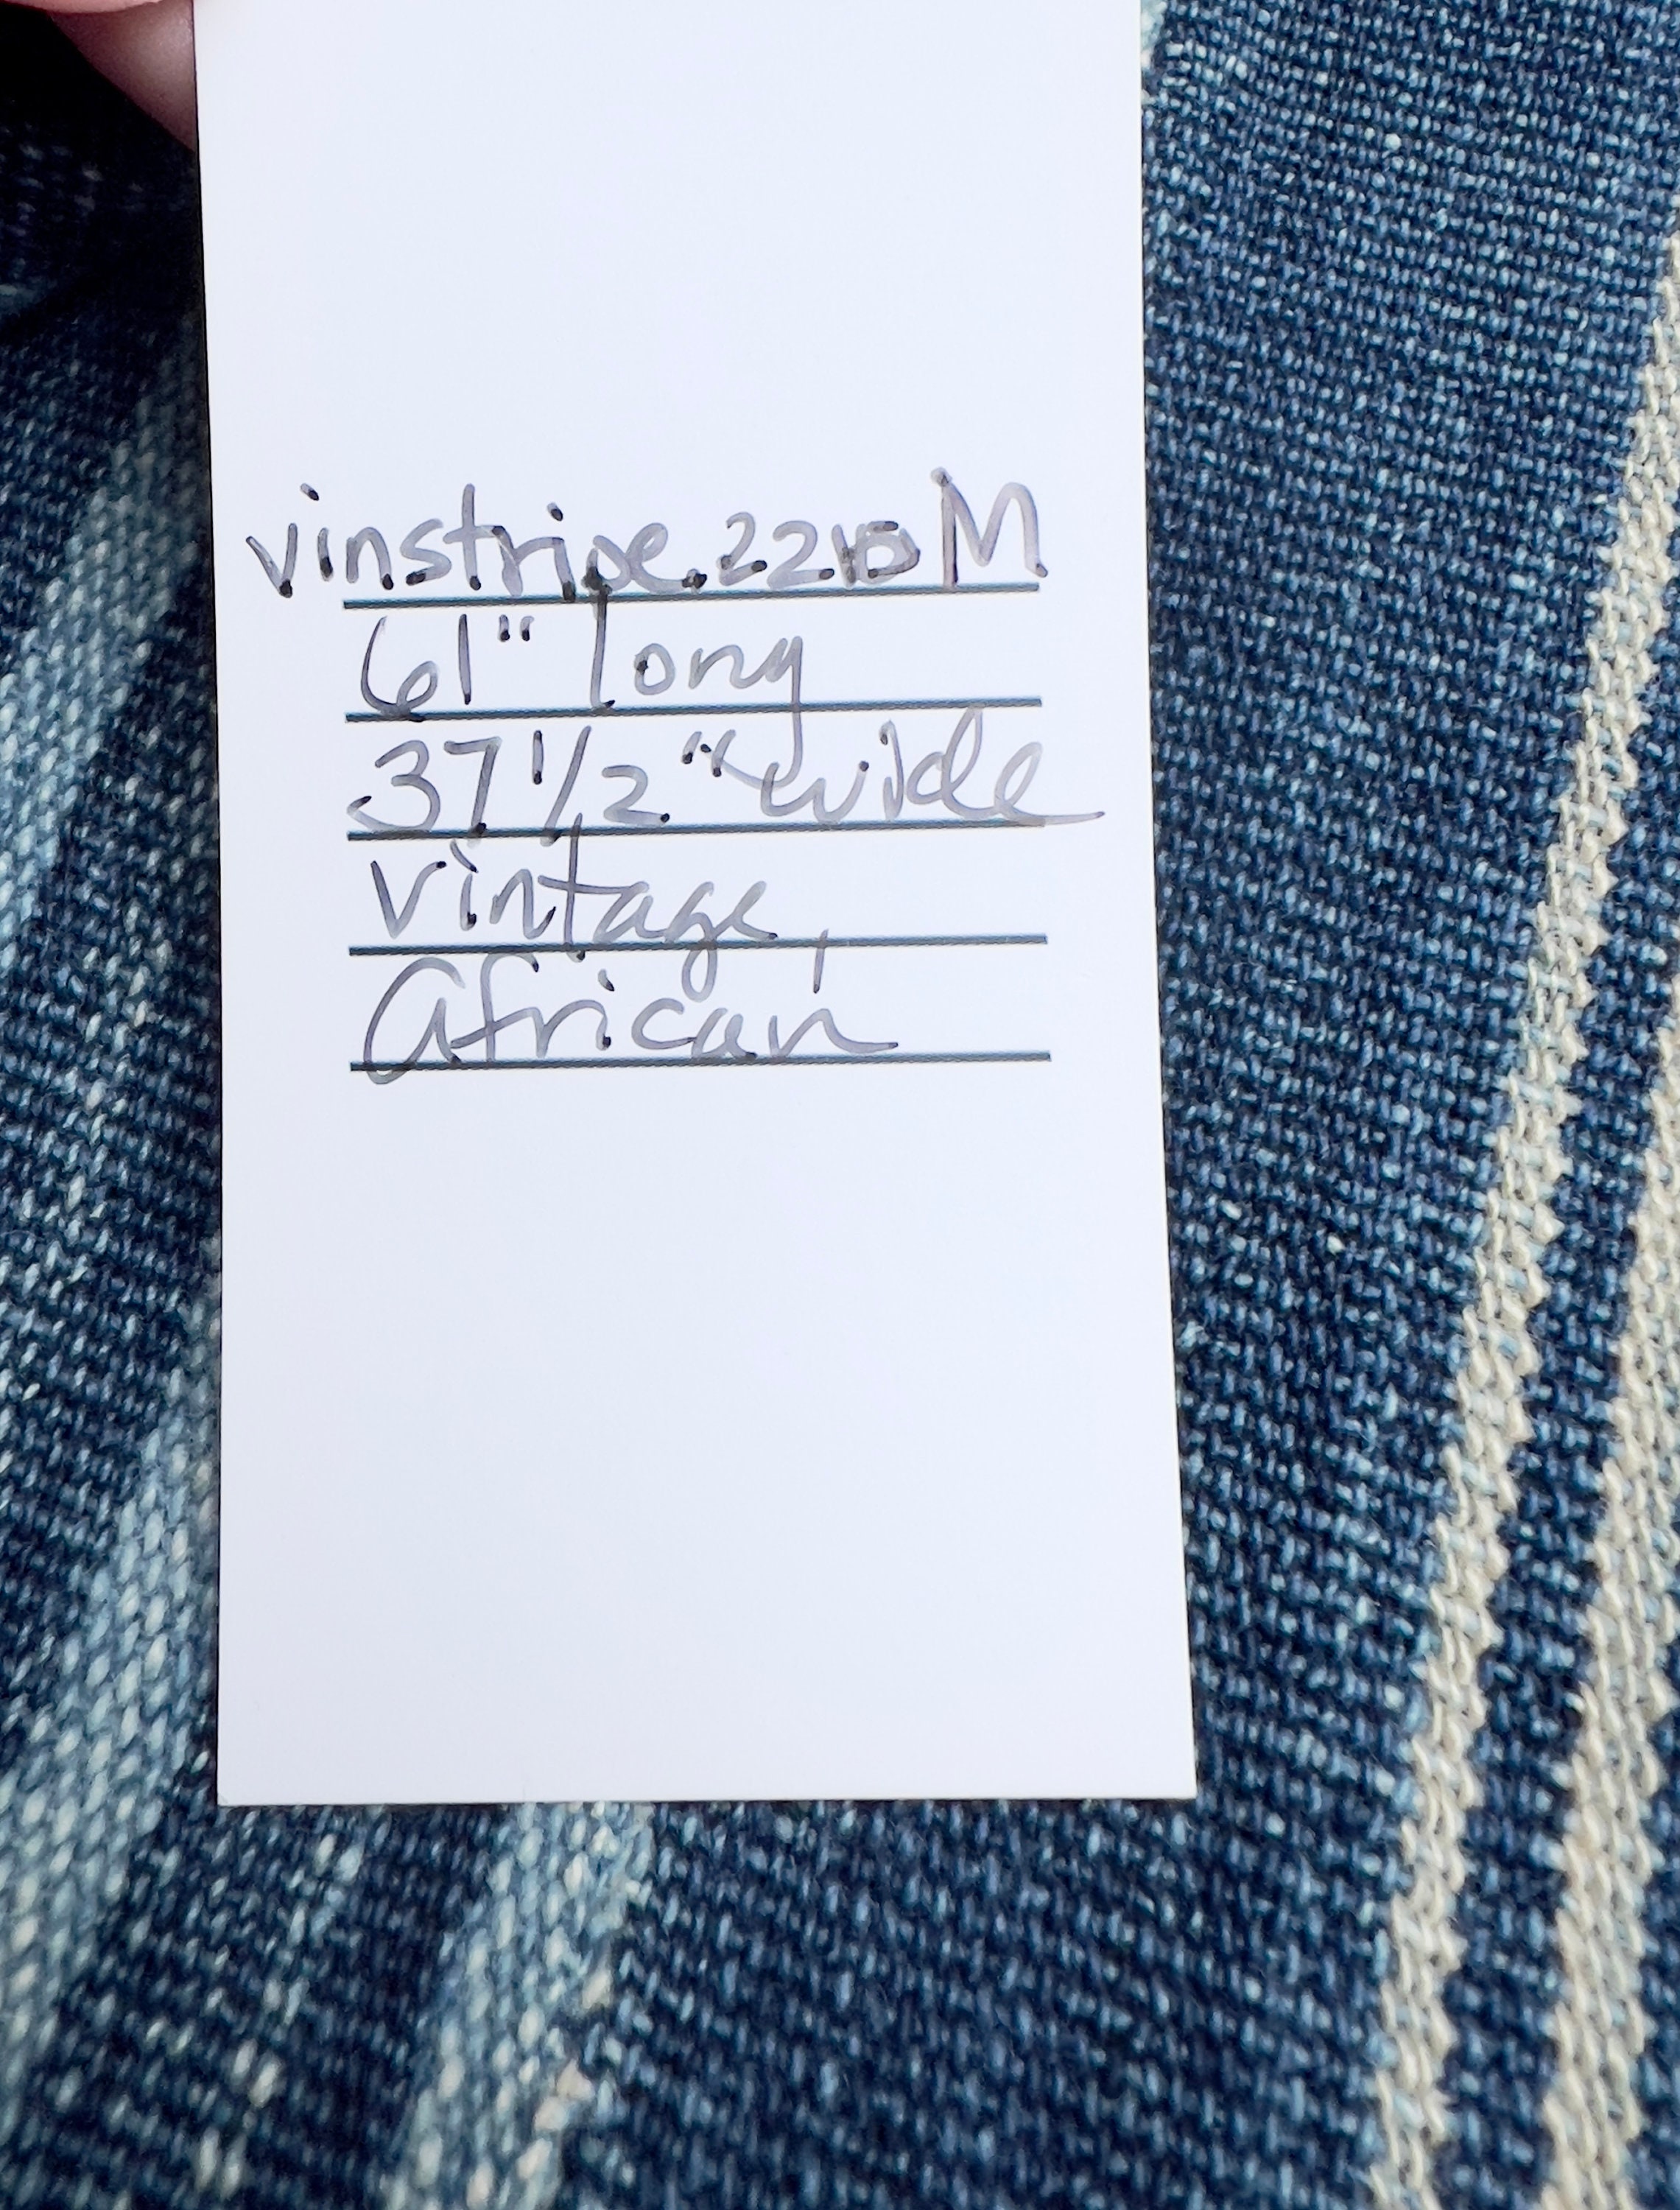 vinstripe.2210M
61" long
37 1/2 " wide
vintage,
African